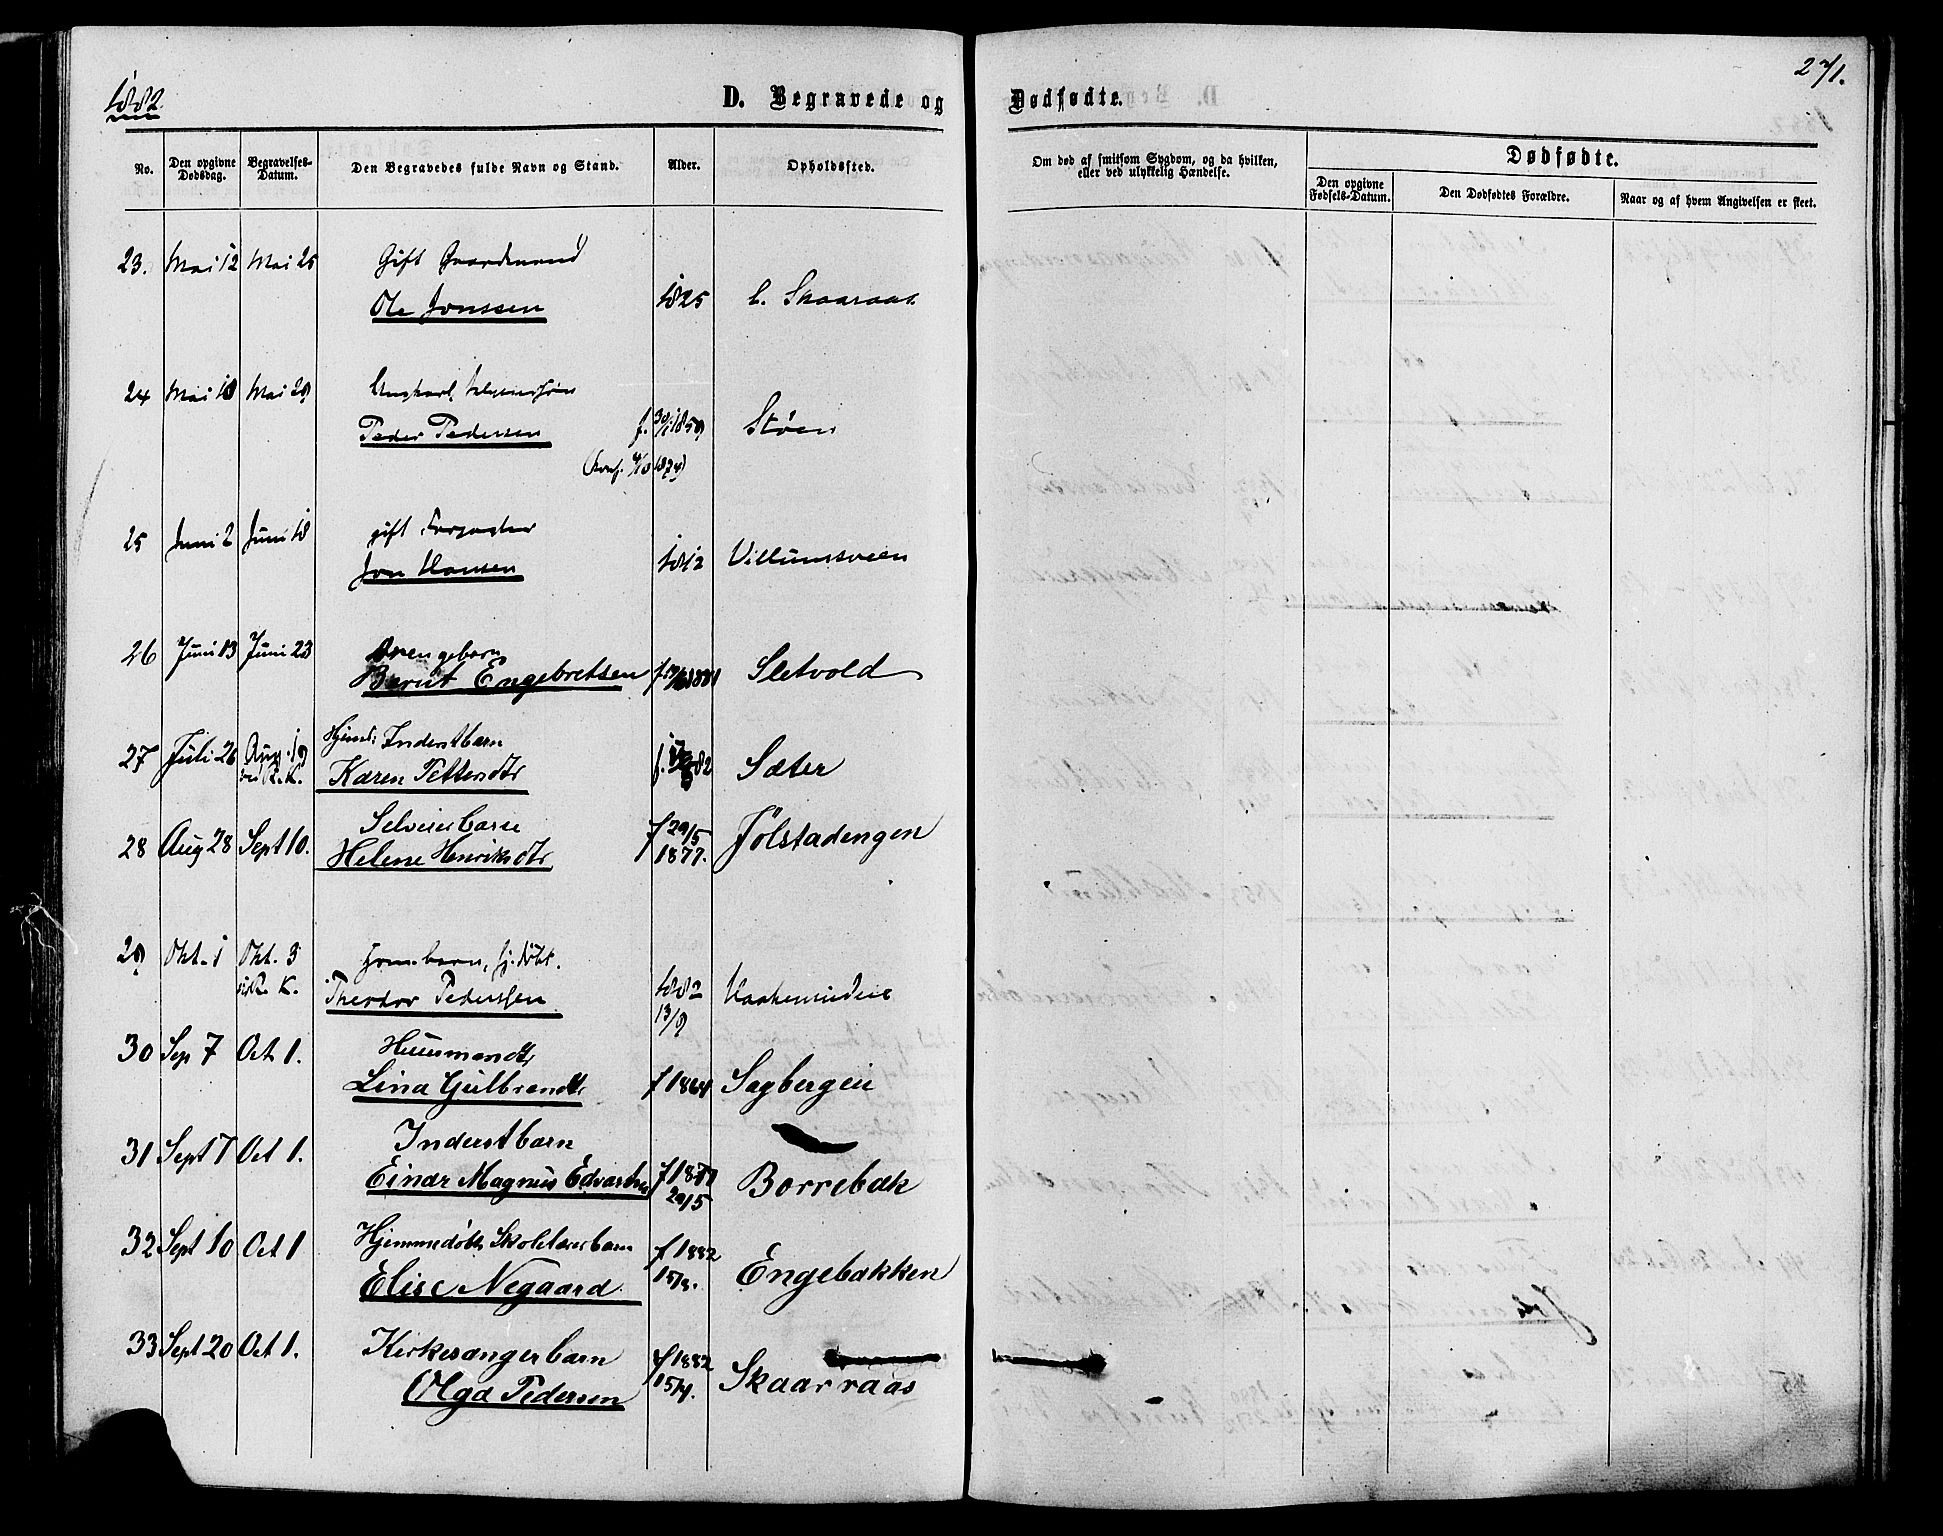 1882
271.
D. Begravede og Dødfødte.
No.
Den opgivne Dødsdag.
Begravelses-Datum.
Den Begravedes fulde Navn og Stand.
Alder.
Opholdssted.
Om død af smitsom Sygdom, og da hvilken, eller ved ulykkelig Hændelse.
Dødfødte.
Den opgivne Fødsels-Datum.
Den Dødfødtes Forældre.
Naar og af hvem Angivelsen er skeet.
23. Mai 12 Mai 25 Gift Gaardmand
Ole Jonssen 1825 Skaaraas
24 Mai 18 Mai 29 Ungkarl,
Peder Pedersen f. 30/1 1859 Støen
(Konf. 1874)
25 Juni 2 Juni 18 gift
Jon Hansen 1812 Villumsveen
26 Juni 13 Juni 23 Drengebarn
Bernt Engebretsen 1881 Sletvold
27 Juli 26 Aug. 19 Hjemd. Inderstbarn
ved R. K. Karen Pettersdtr f. 82 Sæter
Selveierbarn f 29/5
28 Aug 28 Sept 10. Helene Henriksdtr 1877. Jølstadengen
29 Okt. 1 Okt. 3 hj. døbt.
R. K. Theodor Pederssen 1882
13/9
30 Sep 7 Oct 1. Huusmandsdtr
Lina Gulbrandsdtr f 1864 Sagbergeie
31 Sept 7 Oct 1. Inderstbarn
Einar Magnus Edvardsen f 18
29/5 Borrebæk
32 Sept 10 Oct 1 Hjemmedøbt Skolelærerbarn f 1882
Elise Negaard 15/8. Engebakken
33 Sept 20 Oct 1. Kirkesangerbarn f 1882
Olga Pedersen 15/4. Skaarraas